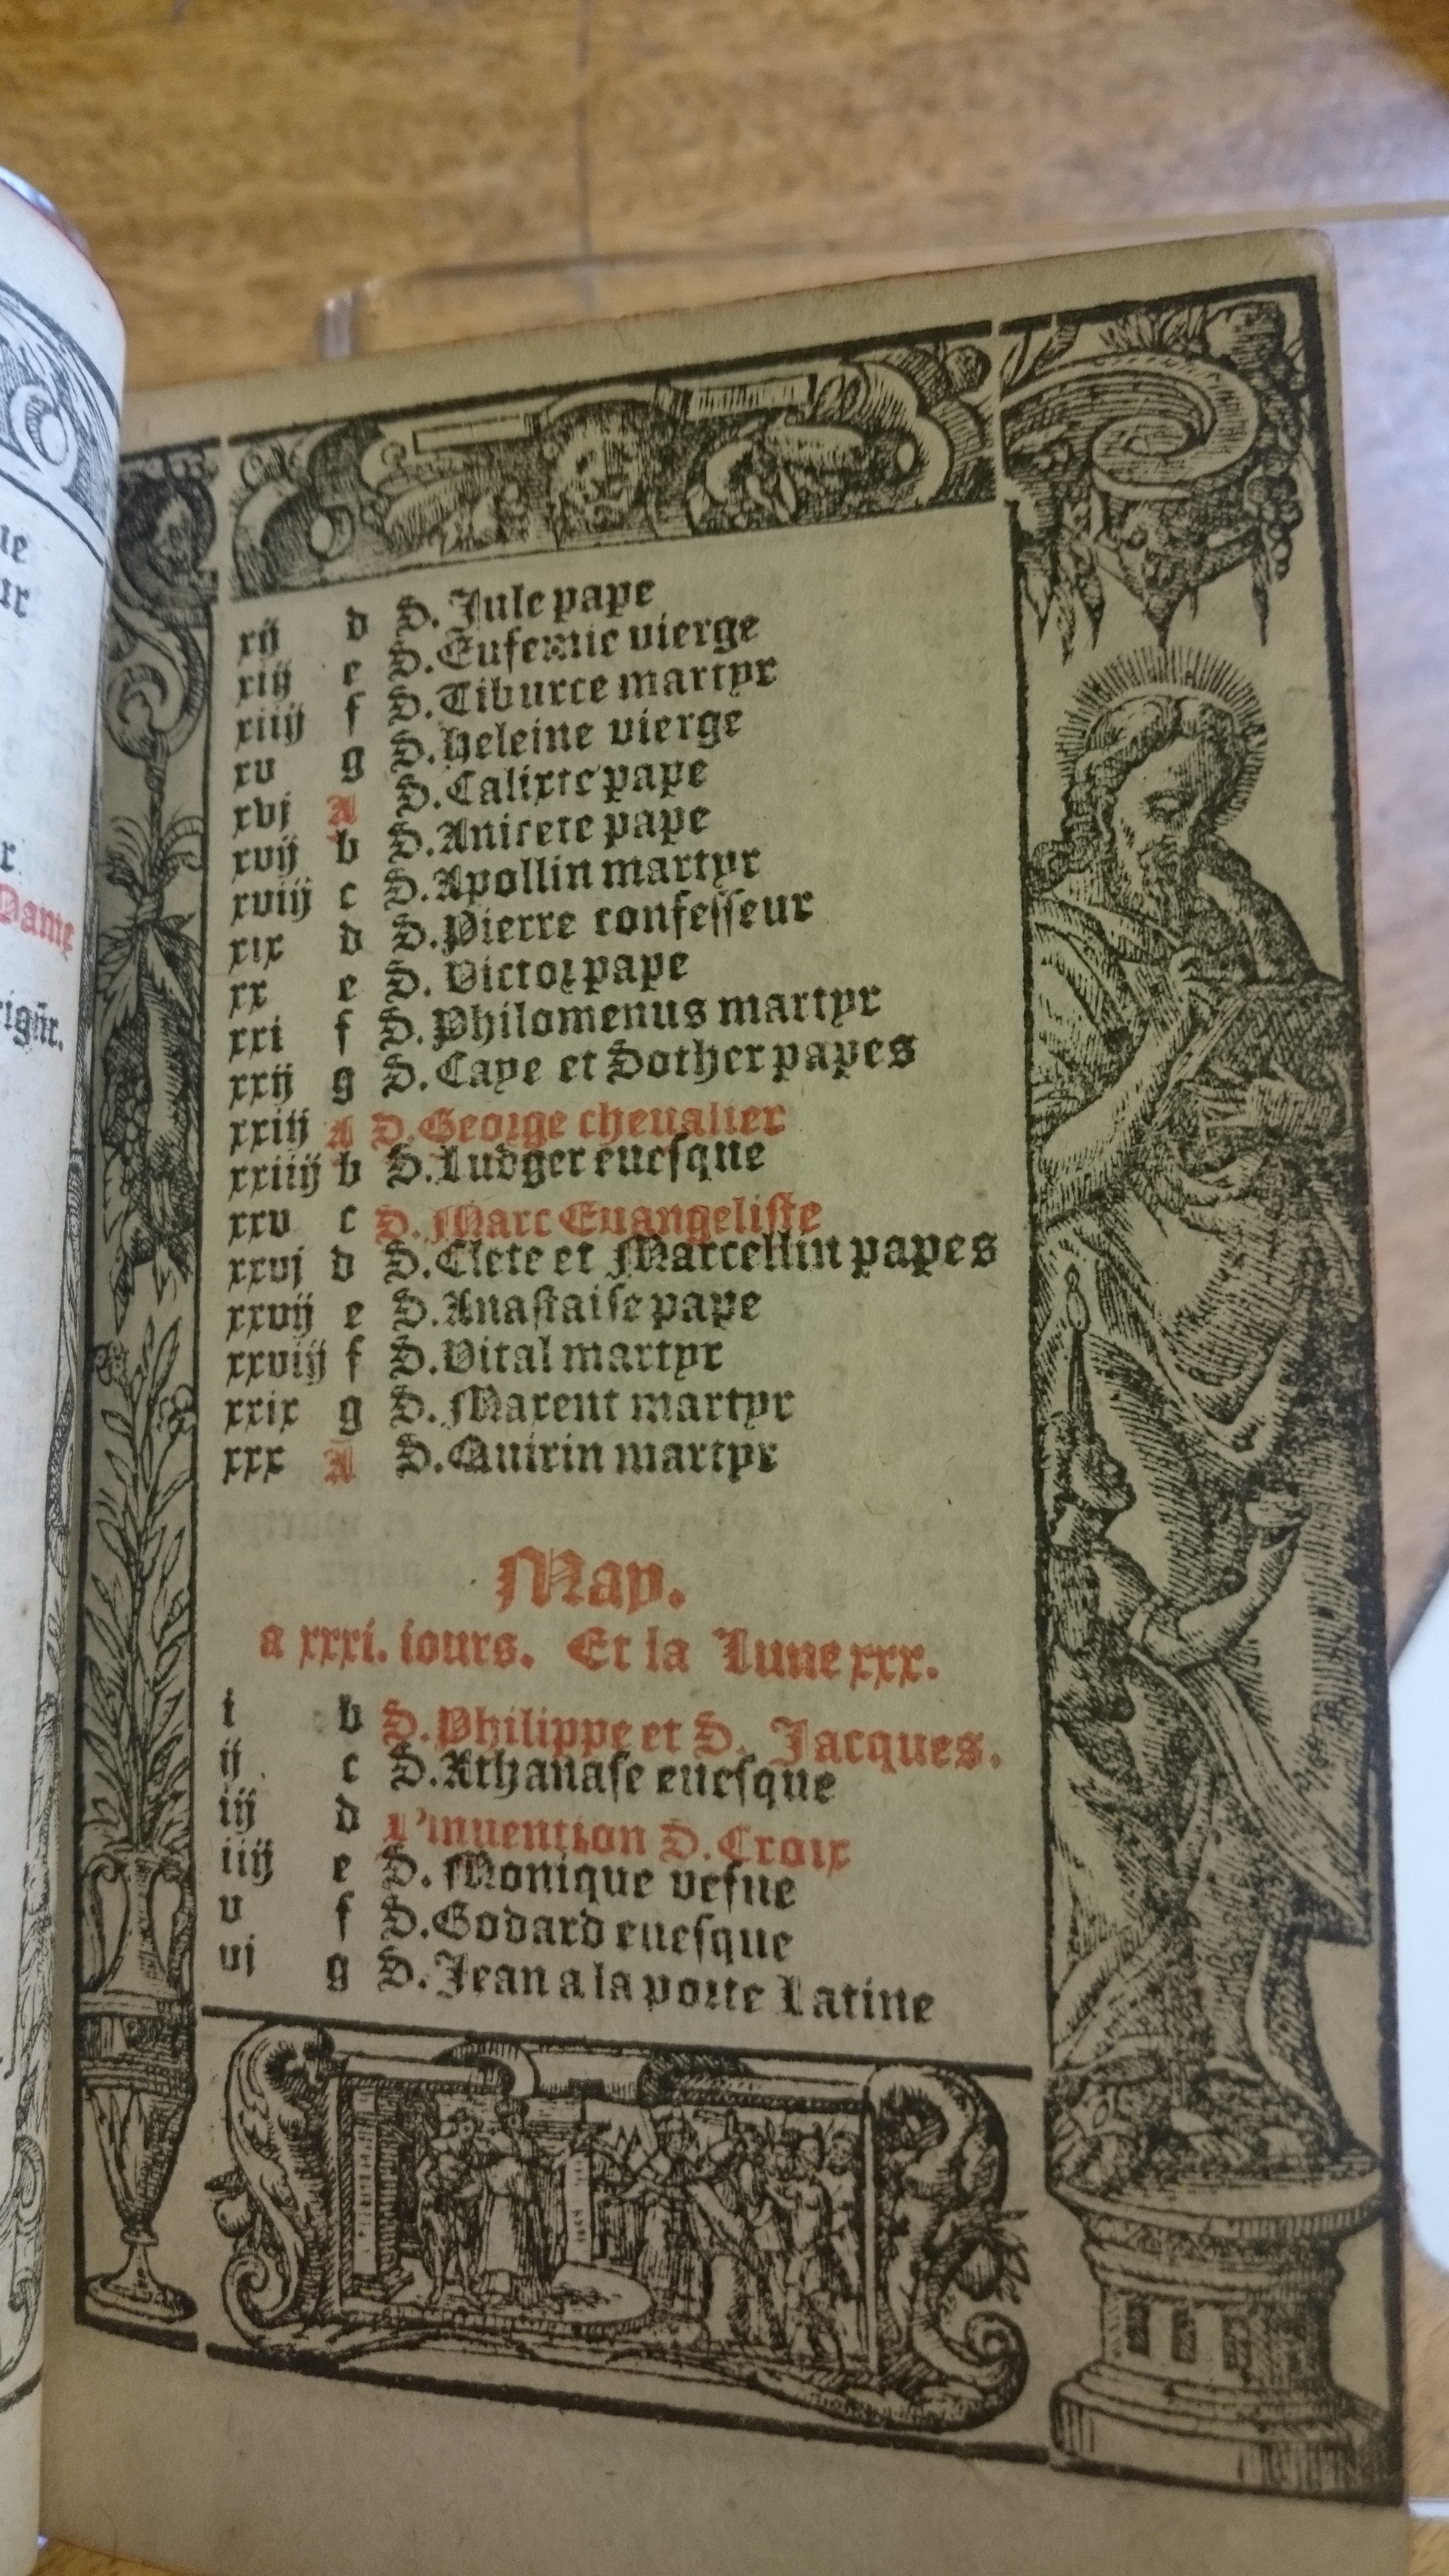 ue
ur
r.
Dame
rigñr.
xij d S. Jule pape
xiij e S. Eufemie vierge
xiiij f S. Tiburce martyr
xv g S. Heleine vierge
xvj A S. Calixte pape
xvij b S. Anicete pape
xviij c S. Apollin martyr
xix d S. Pierre confesseur
xx e S. Victor pape
xxi f S. Philomenus martyr
xxij g S. Caye et Sother papes
xxiij A S. George cheualier
xxiiij b S. Ludger euesque
xxv c S. Marc Euangeliste
xxvj d S. Clete et Marcellin papes
xxvij e S. Anastaise pape
xxviij f S. Vital martyr
xxix g S. Maxent martyr
xxx A S. Quirin martyr
May.
a xxxi. iours. Et la Lune xxx.
i b S. Philippe et S. Jacques.
ij c S. Athanase euesque
iij d L'inuention S. Croix
iiij e S. Monique vefue
v f S. Godard euesque
vj g S. Jean a la porte Latine